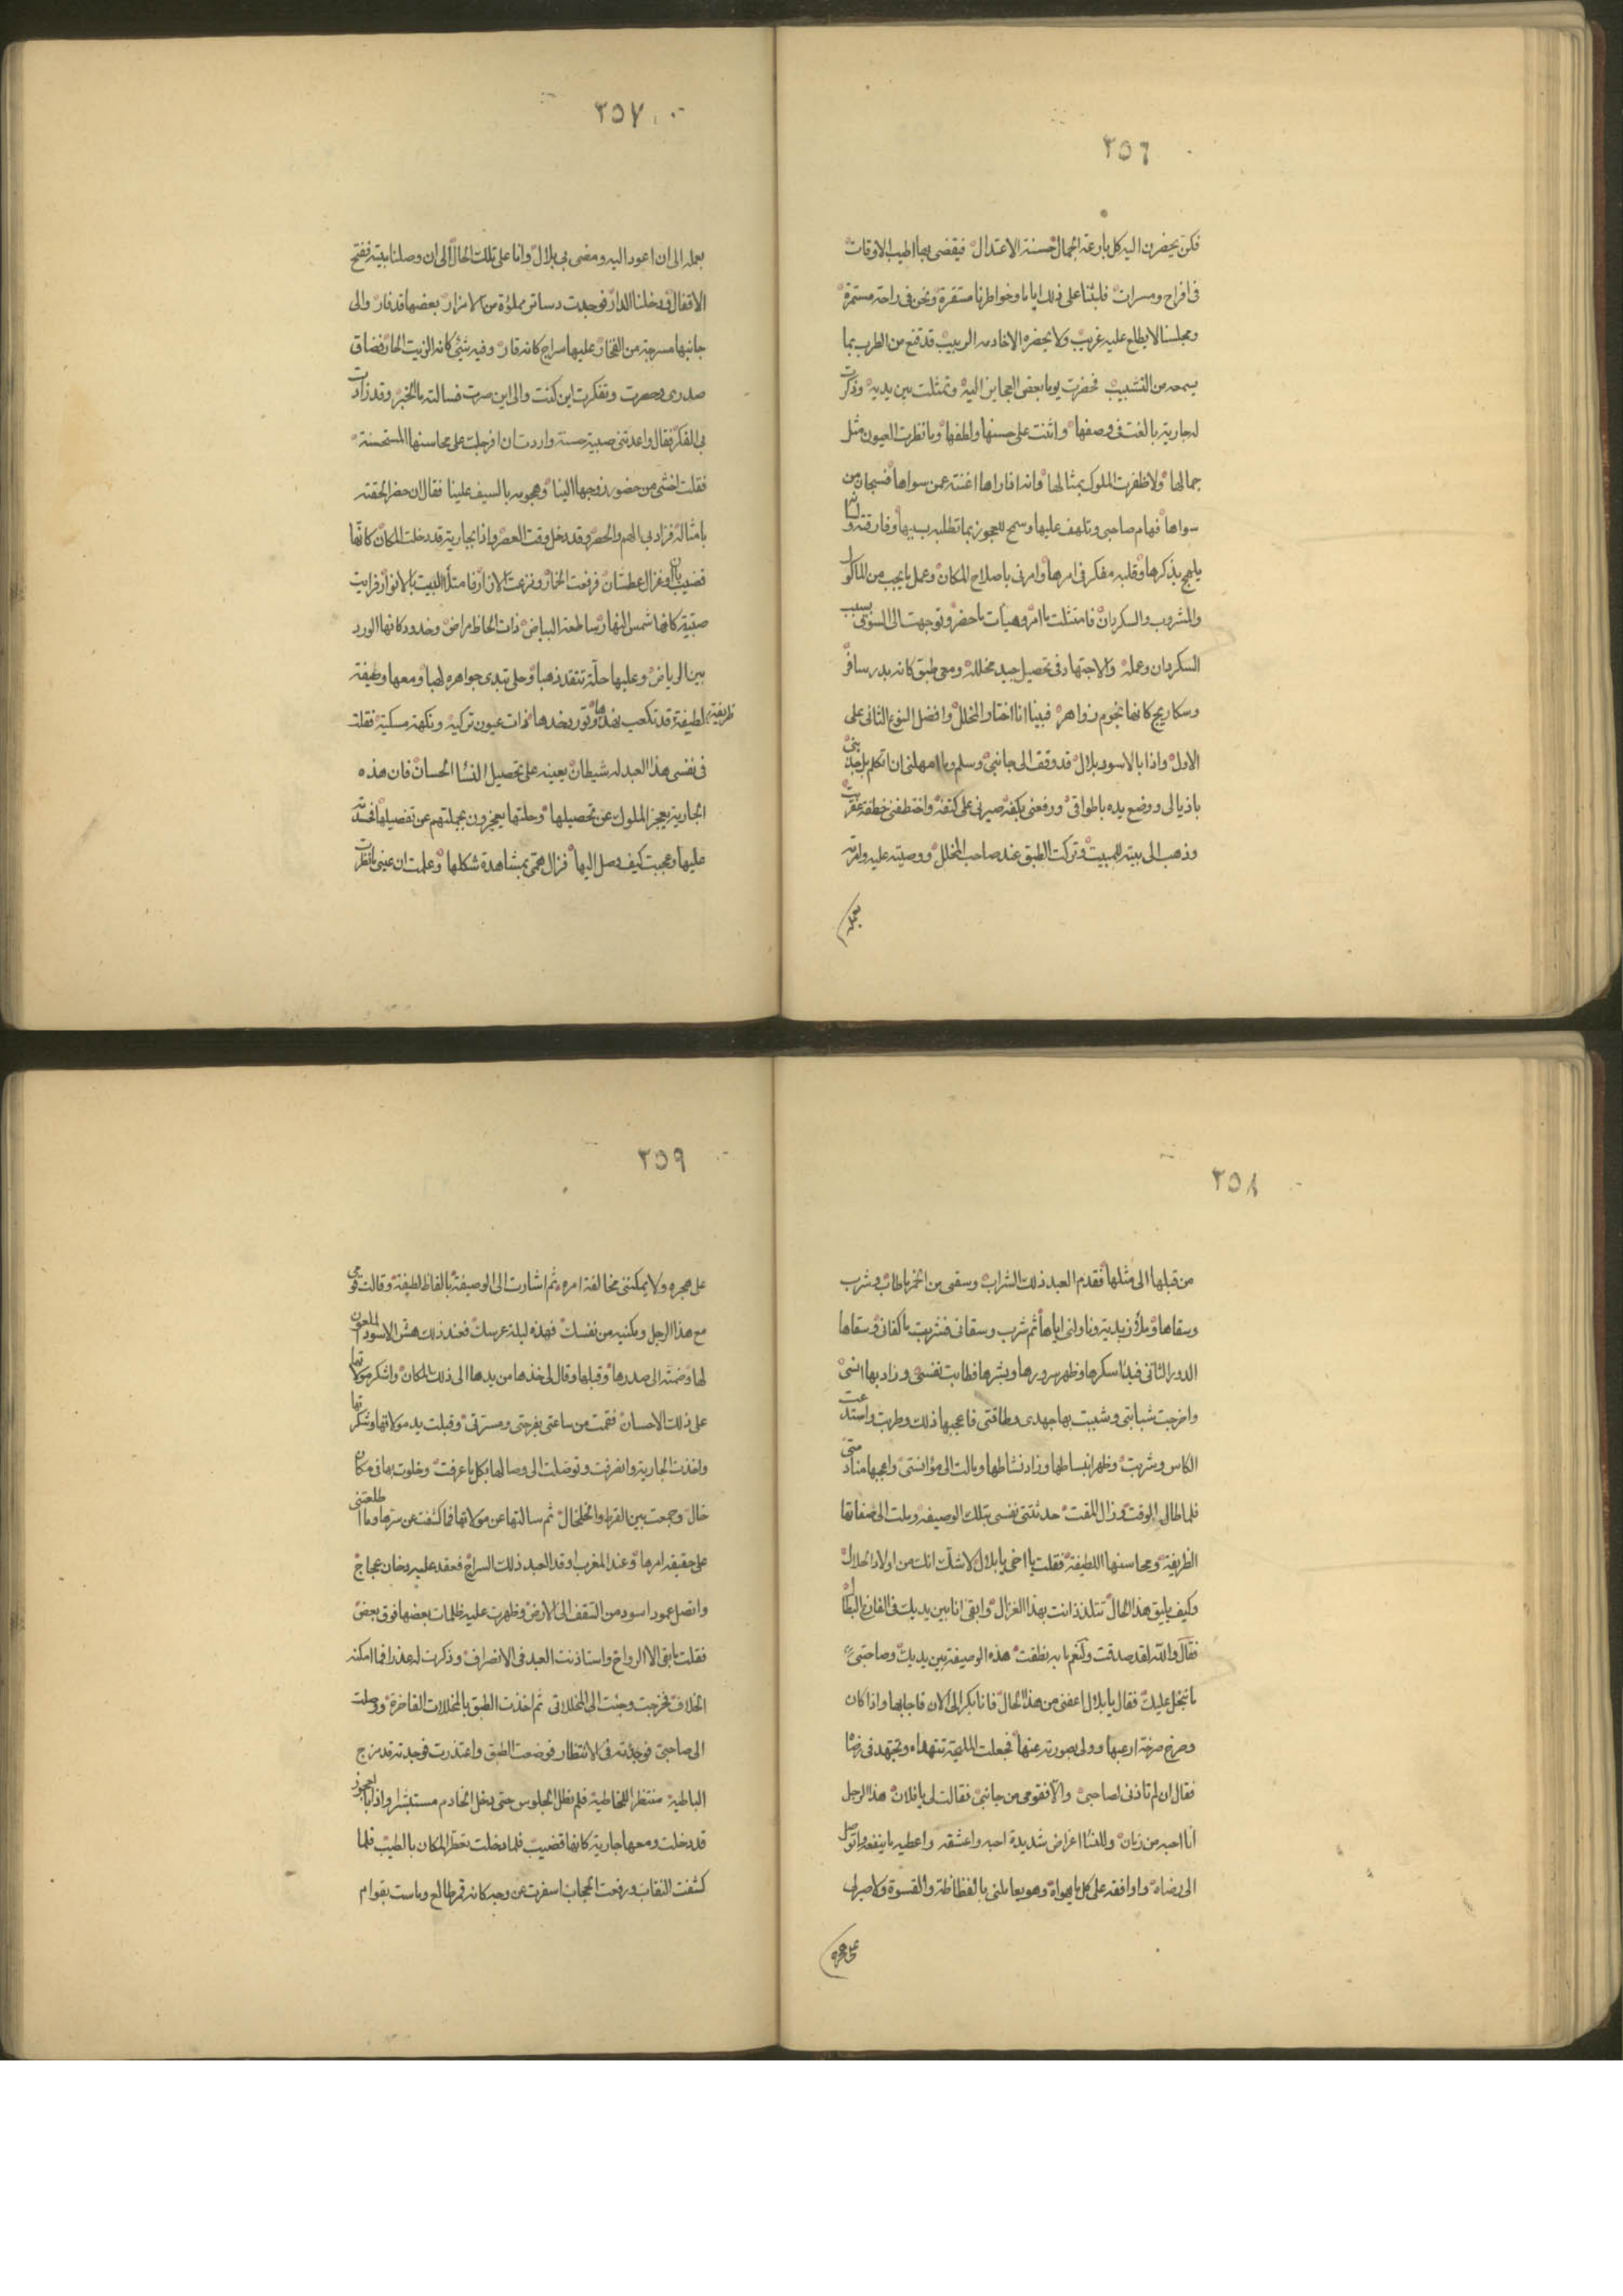 ٢٥٦
فكن يحضرن اليه كل بارعة الجمال حسنة الاعتدال فيقضى بها اطيب الاوقات
فى افراح ومسرات فلبثنا على ذلك اياما وخواطرنا مستقرة ونحن فى راحة مستمرة
ومجلسنا لا يطلع عليه غريب ولا يحضره الا خادمه الربيب قد قنع من الطرب بما
يسمعه من التشبيب فحضرت يوما بعض العجايز اليه وتمثلت بين يديه وذكرت
له جارية بالغت فى وصفها واثنت على حسنها ولطفها وما نظرت العيون مثل
جمالها ولا ظفرت الملوك بمثالها وانه اذا راها اغنته عمن سواها فسبحان من
سواها فهام صاحبى وتلهف عليها وسمح للعجوز بما تطلبه بسببها وفارقته ولسانه
يلهج بذكرها وقلبه مفكر فى امرها وامرنى باصلاح المكان وعمل ما يجب من الماكول
والمشروب والسكردان فامتثلت ما امر وهيأت ما حضر وتوجهت الى السوق بسبب
السكردان وعمله والاجتهاد فى تحصيل جيد مخلله ومعى طبق كانه بدر سافر
وسكاريج كانها نجوم زواهر فبينا انا اختار المخلل وافضل النوع الثانى على
الاول واذا بالاسود بلال قد وقف الى جانبى وسلم وما امهلنى ان اتكلم بل جذبنى
باذيالى ووضع يده باطواقى ورفعنى بكفه صيرنى على كتفه واختطفنى خطفة عفريت
وذهب الى بيته للمبيت وتركت الطبق عند صاحب المخلل ووصيته عليه وامرته
بعمله
٢٥٧
بعمله الى ان اعود اليه ومضى بى بلال وانا على تلك الحال الى ان وصلنا بيته ففتح
الاقفال ودخلنا الدار فوجدت دساتر مملؤة من الامزار بعضها قد فار والى
جانبها مسرجة من الفخار عليها سراج كانه قار وفيه شئ كانه الزيت الحار فضاق
صدرى وحصرت وتفكرت اين كنت والى اين صرت فسالته ما الخبر وقد زادت
بى الفكر فقال واعدتنى صبية حسنة واردت ان افرجك على محاسنها المستحسنة
فقلت اخشى من حضور زوجها الينا وهجومه بالسيف علينا فقال ان حضر الحقته
بامثاله فزاد بى الهم والحصر وقد دخل وقت العصر واذا بجارية قد دخلت المكان كانها
قضيب بان او غزال عطشان فرفعت الخمار ونزعت الازار فامتلأ البيت بالانوار فرايت
صبية كانها شمس النهار ساطعة البياض ذات الحاظ مراض وخدود كانها الورد
بين الرياض وعليها حلة تتقد ذهبا وحلى تبدى جواهره لهبا ومعها وصيفة
ظريفة لطيفة قد تكعب نهدها وتورد خدها ذات عيون تركية ونكهة مسكية فقلت
فى نفسى هذا العبد له شيطان يعينه على تحصيل النسا الحسان فان هذه
الجارية يعجز الملوك عن تحصيلها وحلتها يعجزون بجملتهم عن تفصيلها فحسدته
عليها وعجبت كيف وصل اليها فزال همى بمشاهدة شكلها وعلمت ان عينى ما نظرت
٢٥٨
من قبلها الى مثلها فقدم العبد ذلك الشراب وسقى من الخمر ما طاب وشرب
وسقاها وملأ زبدية وناولنى اياها ثم شرب وسقانى فشربت ما كفانى وسقاها
الدور الثانى فبدا سكرها وظهر سرورها وبشرها فطابت نفسى وزاد بها انسى
واخرجت شبابتى وشببت بها جهدى وطاقتى فاعجبها ذلك وطربت واستدعت
الكاس وشربت وظهر انبساطها وزاد نشاطها ومالت الى مؤانستى واعجبها منادمتى
فلما طال الوقت وزال المقت حدثتنى نفسى بتلك الوصيفة وملت الى صفاتها
الظريفة ومحاسنها اللطيفة فقلت يا اخى يا بلال لا شك انك من اولاد الحلال
وكيف يليق هذا الحال تتلذذ انت بهذا الغزال وابقى انا بين يديك فى الفارغ البطال
فقال والله لقد صدقت ونعم ما به نطقت هذه الوصيفة بين يديك وصاحبتى
ما تبخل عليك فقال يا بلال اعفنى من هذا الحال فانا بكر الى الان فاجابها واذا كان
وصرخ صرخة ارعبها وولى بصورته عنها فجعلت المليحة تتهداه وتجتهد فى رضاه
فقال ان لم تاذنى لصاحبى والا فقومى من جانبى فقالت لى يا فلان هذا الرجل
انا احبه من زمان وللنسا اغراض شديدة احبه واعشقه واعطيه ما ينفقه واتوصل
الى رضاه واوافقه على كل ما يهواه وهو يعاملنى بالفظاظة والقسوة ولا صبر لى
على هجره
٢٥٩
على هجره ولا يمكننى مخالفة امره ثم اشارت الى الوصيفة بالفاظ لطيفة وقالت قومى
مع هذا الرجل ومكنيه من نفسك فهذه ليلة عرسك فعند ذلك هش الاسود الملعون
لها وضمته الى صدرها وقبلها وقال لى خذها من يدها الى ذلك المكان واشكر مولاتها
على ذلك الاحسان فقمت من ساعتى بفرحتى ومسرتى وقبلت يد مولاتها وشكرتها
واخذت الجارية وانصرفت وتوصلت الى وصالها بكل ما عرفت وخلوت بها فى مكان
خال وجمعت بين القرط والخلخال ثم سالتها عن مولاتها فما كشفت عن سرها وما اطلعتنى
على حقيقة امرها وعند المغرب اوقد العبد ذلك السراج فعقد عليه دخان عجاج
واتصل عمود اسود من السقف الى الارض وظهرت عليه ظلمات بعضها فوق بعض
فقلت ما بقى الا الرواح واستاذنت العبد فى الانصراف وذكرت له عذرا فما امكنه
الخلاف فخرجت وجئت الى المخللاتى ثم اخذت الطبق بالمخللات الفاخرة ووصلت
الى صاحبى فوجدته فى الانتظار فوضعت الطبق واعتذرت فوجدته قد مزج
الباطية منتظرا للخاطية فلم نطل الجلوس حتى دخل الخادم مستبشرا واذا بالعجوز
قد دخلت ومعها جارية كانها قضيب فلما دخلت تعطر المكان بالطيب فلما
كشفت النقاب ورفعت الحجاب اسفرت عن وجه كانه قمر طالع وماست بقوام